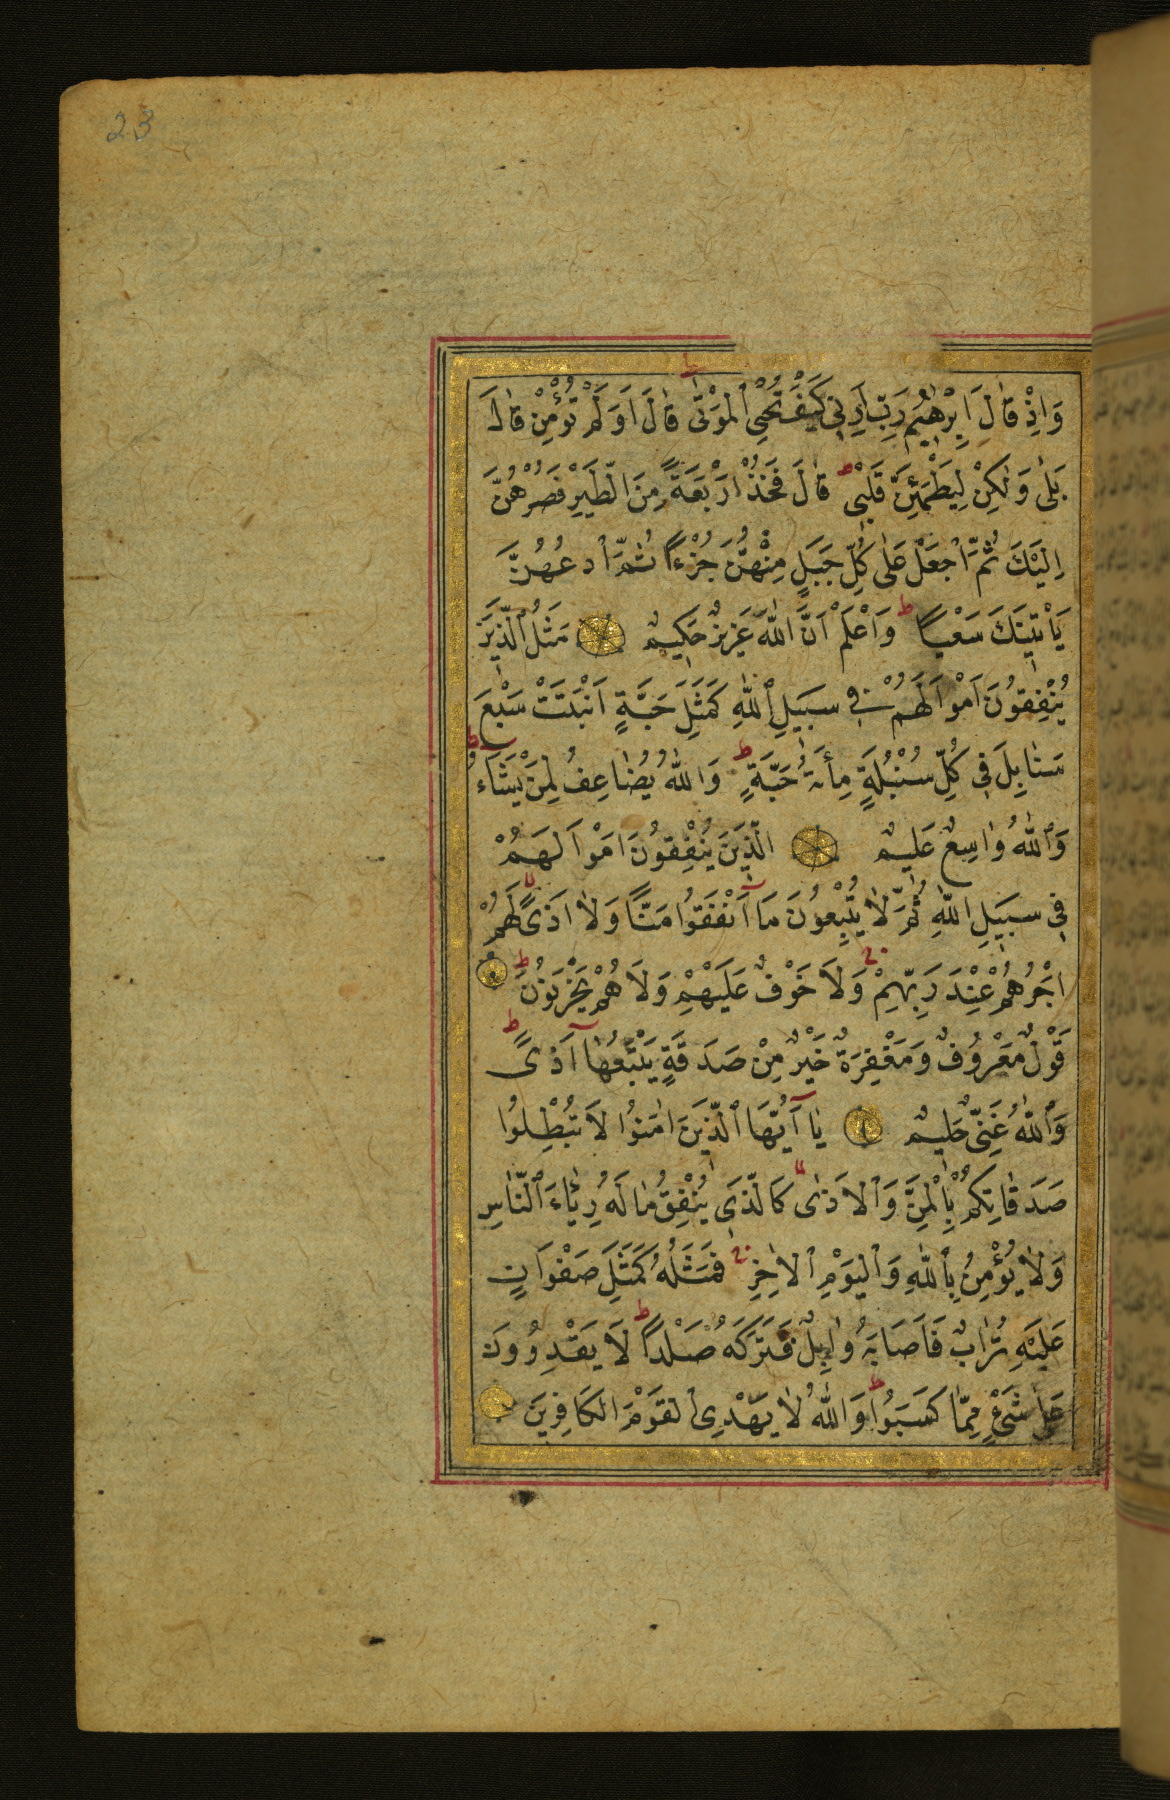 23
وَاِذْ قَالَ اِبْرٰهٖيمُ رَبِّ اَرِنٖى كَيْفَ تُحْيِى الْمَوْتٰى ط قَالَ اَوَلَمْ تُؤْمِنْ قَالَ
بَلٰى وَلٰكِنْ لِيَطْمَئِنَّ قَلْبٖى ط قَالَ فَخُذْ اَرْبَعَةً مِنَ الطَّيْرِ فَصُرْهُنَّ
اِلَيْكَ ثُمَّ اجْعَلْ عَلٰى كُلِّ جَبَلٍ مِنْهُنَّ جُزْءًا ثُمَّ ادْعُهُنَّ
يَاْتٖينَكَ سَعْيًا ط وَاعْلَمْ اَنَّ اللّٰهَ عَزٖيزٌ حَكٖيمٌ مَثَلُ الَّذٖينَ
يُنْفِقُونَ اَمْوَالَهُمْ فٖى سَبٖيلِ اللّٰهِ كَمَثَلِ حَبَّةٍ اَنْبَتَتْ سَبْعَ
سَنَابِلَ فٖى كُلِّ سُنْبُلَةٍ مِائَةُ حَبَّةٍ ط وَاللّٰهُ يُضَاعِفُ لِمَنْ يَشَٓاءُ ط
وَاللّٰهُ وَاسِعٌ عَلٖيمٌ اَلَّذٖينَ يُنْفِقُونَ اَمْوَالَهُمْ
فٖى سَبٖيلِ اللّٰهِ ثُمَّ لَا يُتْبِعُونَ مَٓا اَنْفَقُوا مَنًّا وَلَا اَذًى لا لَهُمْ
اَجْرُهُمْ عِنْدَ رَبِّهِمْ ج وَلَا خَوْفٌ عَلَيْهِمْ وَلَا هُمْ يَحْزَنُونَ ط
قَوْلٌ مَعْرُوفٌ وَمَغْفِرَةٌ خَيْرٌ مِنْ صَدَقَةٍ يَتْبَعُهَٓا اَذًى ط
وَاللّٰهُ غَنِىٌّ حَلٖيمٌ يَٓا اَيُّهَا الَّذٖينَ اٰمَنُوا لَا تُبْطِلُوا
صَدَقَاتِكُمْ بِالْمَنِّ وَالْاَذٰى لا كَالَّذٖى يُنْفِقُ مَالَهُ رِئَاءَ النَّاسِ
وَلَا يُؤْمِنُ بِاللّٰهِ وَالْيَوْمِ الْاٰخِرِ ج فَمَثَلُهُ كَمَثَلِ صَفْوَانٍ
عَلَيْهِ تُرَابٌ فَاَصَابَهُ وَابِلٌ فَتَرَكَهُ صَلْدًا ط لَا يَقْدِرُونَ
عَلٰى شَىْءٍ مِمَّا كَسَبُوا ط وَاللّٰهُ لَا يَهْدِى الْقَوْمَ الْكَافِرٖينَ